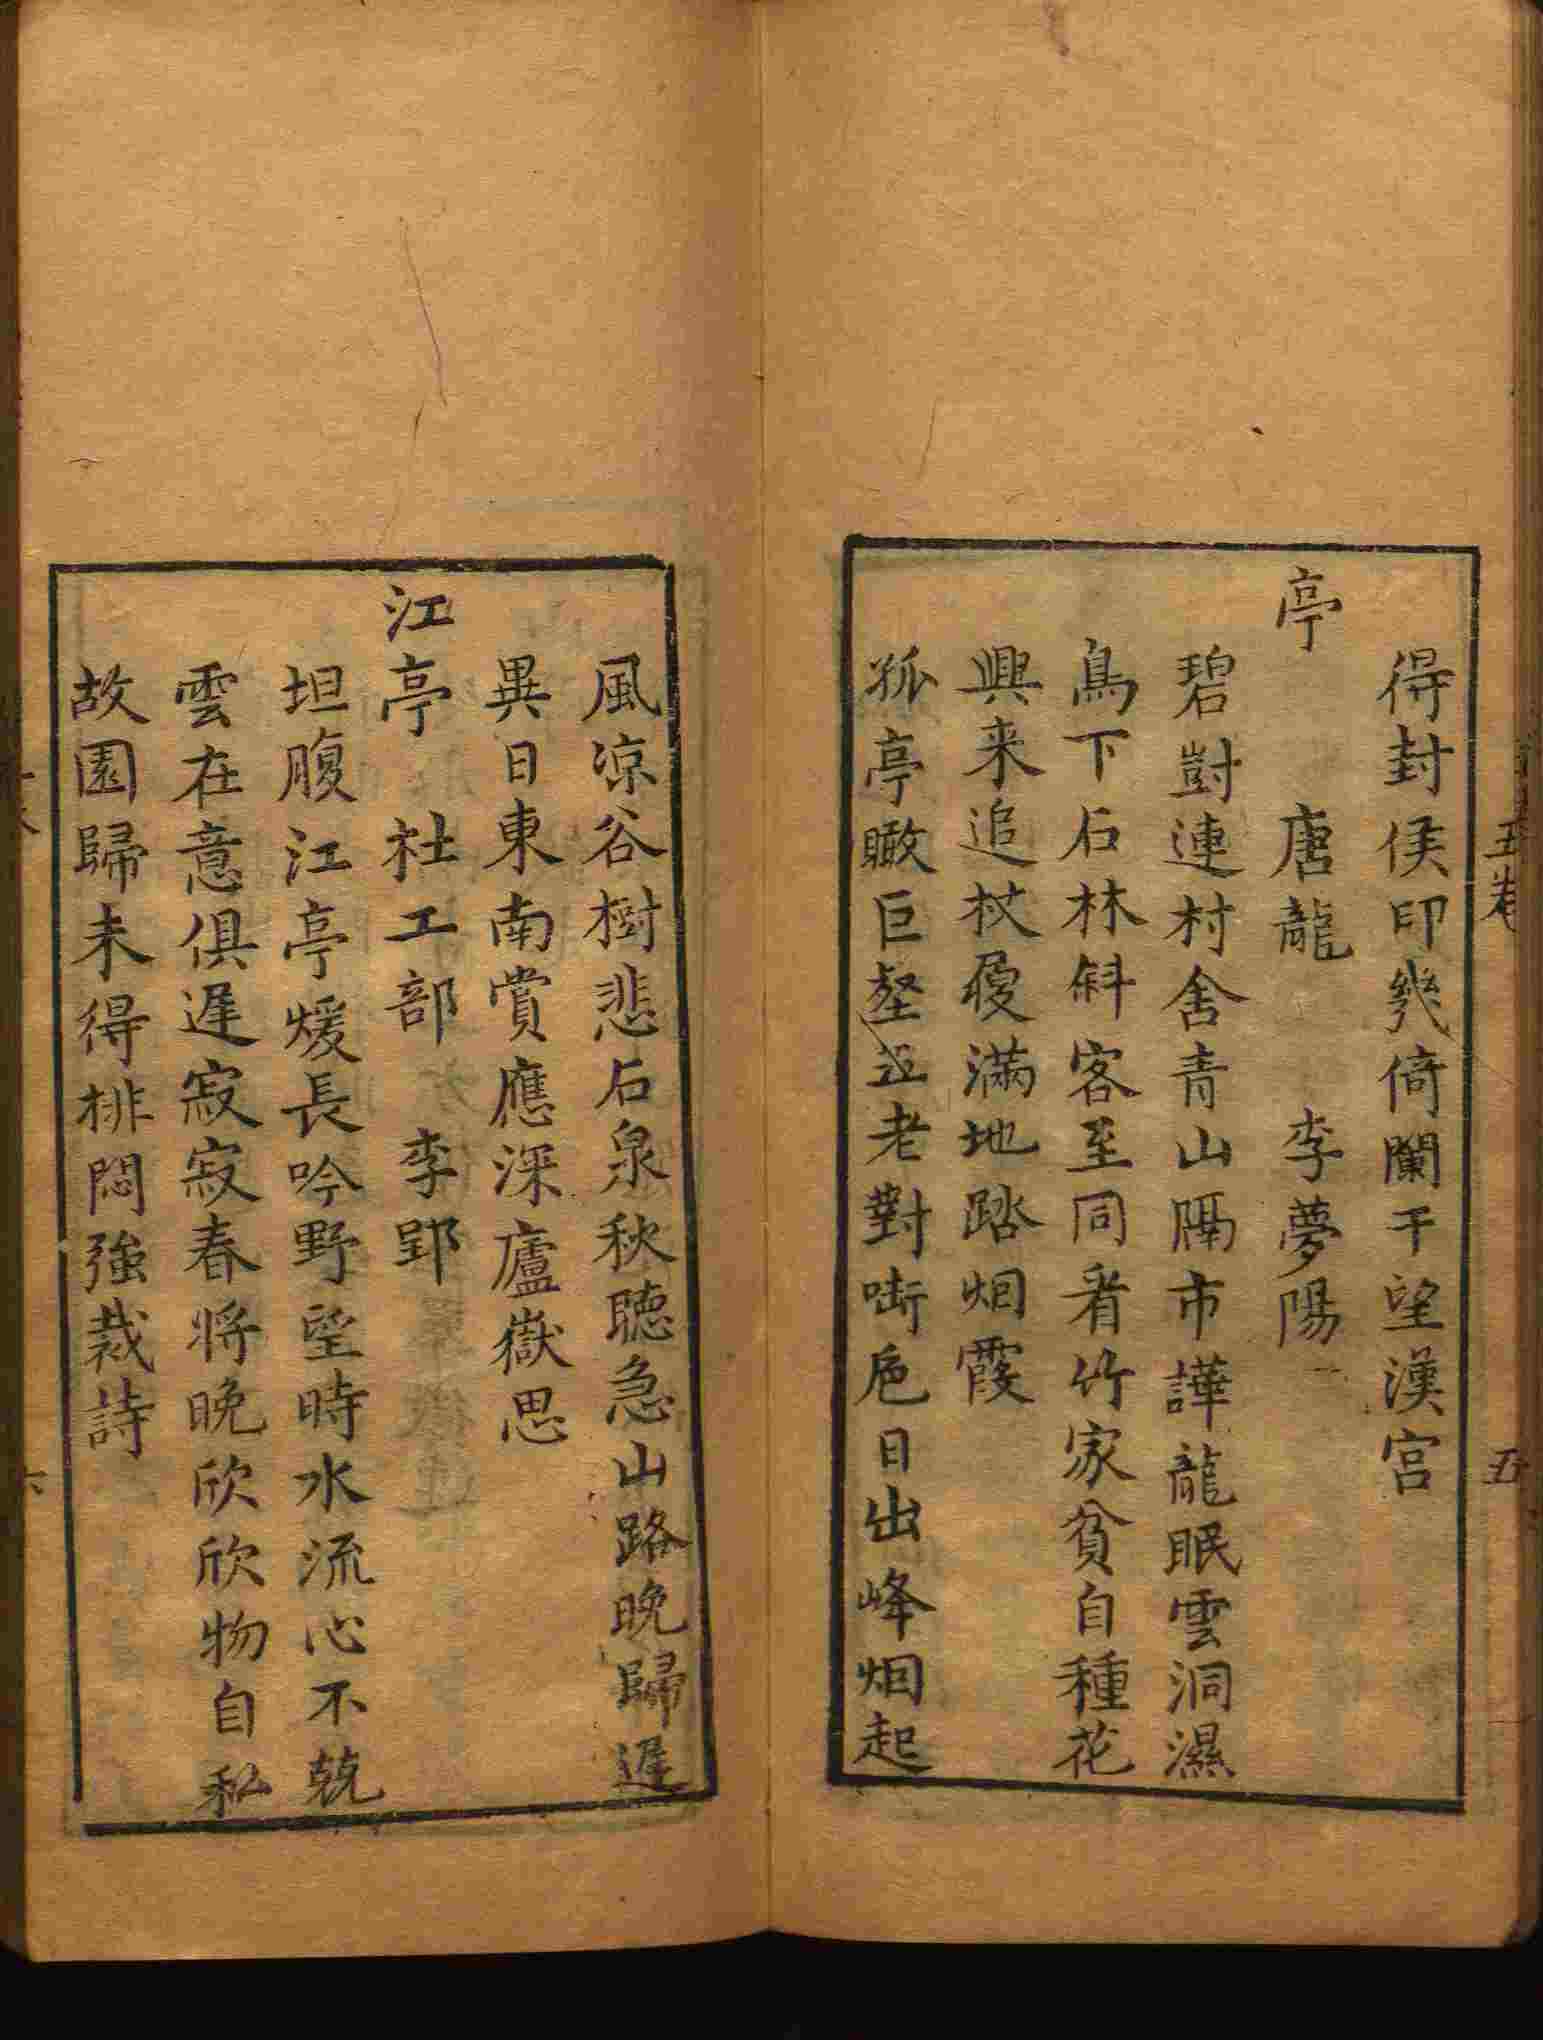 得封侯印幾倚闌干望漢宮
亭 唐龍 李夢陽
碧澍連村舍青山隔市譁龍眠雲洞濕
鳥下石林斜客至同看竹家貧自種花
興来追杖屨滿地踏烟霞
孤亭瞰巨壑五老對嘶巵日出峰烟起
風凉谷樹悲石泉秋聴急山路晚歸遲
異日東南賞應深廬嶽思
江亭 杜工部 李郢
坦腹江亭煖長吟野望時水流心不競
雲在意俱遲寂寂春将晚欣欣物自私
故園歸未得排悶強裁詩
五卷
五
六